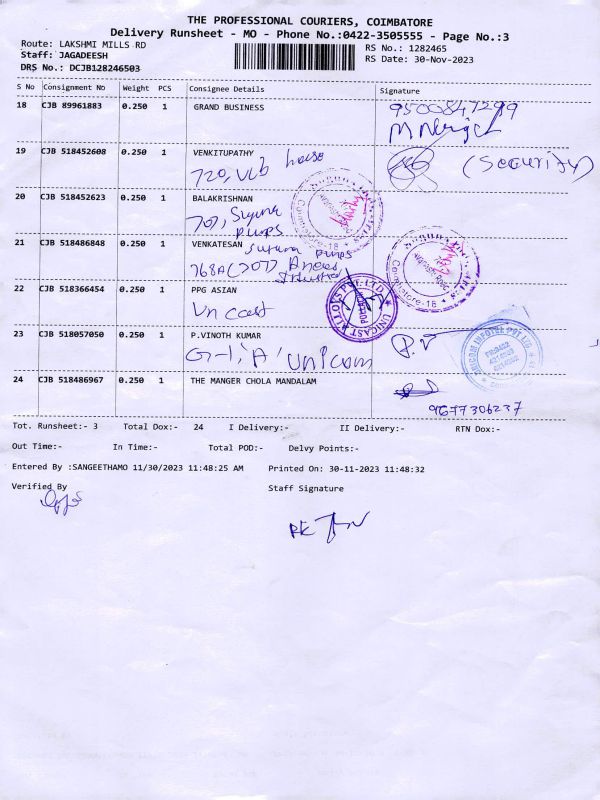 THE PROFESSIONAL COURIERS, COIMBATORE
Delivery Runsheet - MO - Phone No.:0422-3505555 - Page No.:3
Route: LAKSHMI MILLS RD
RS No.: 1282465
Staff: JAGADEESH
RS Date: 30-Nov-2023
DRS No.: DCJB128246503
S No Consignment No Weight PCS Consignee Details Signature
18 CJB 89961883 0.250 1 GRAND BUSINESS
9500847299
19 CJB 518452608 0.250 1 VENKITUPATHY
720, VLB house
(Security)
20 CJB 518452623 0.250 1 BALAKRISHNAN
707, Suguna
Pumps
21 CJB 518486848 0.250 1 VENKATESAN
Suguna Pumps
768A (707)
Coimbatore-18
Coimbatore-18
22 CJB 518366454 0.250 1 PPG ASIAN
Un cast
UNICAST ALLOYS PVT. LTD.
23 CJB 518057050 0.250 1 P.VINOTH KUMAR
G-1, 'A' Unicom
P. V
24 CJB 518486967 0.250 1 THE MANGER CHOLA MANDALAM
9677306237
Tot. Runsheet:- 3 Total Dox:- 24 I Delivery:- II Delivery:- RTN Dox:-
Out Time:- In Time:- Total POD:- Delvy Points:-
Entered By :SANGEETHAMO 11/30/2023 11:48:25 AM Printed On: 30-11-2023 11:48:32
Verified By Staff Signature